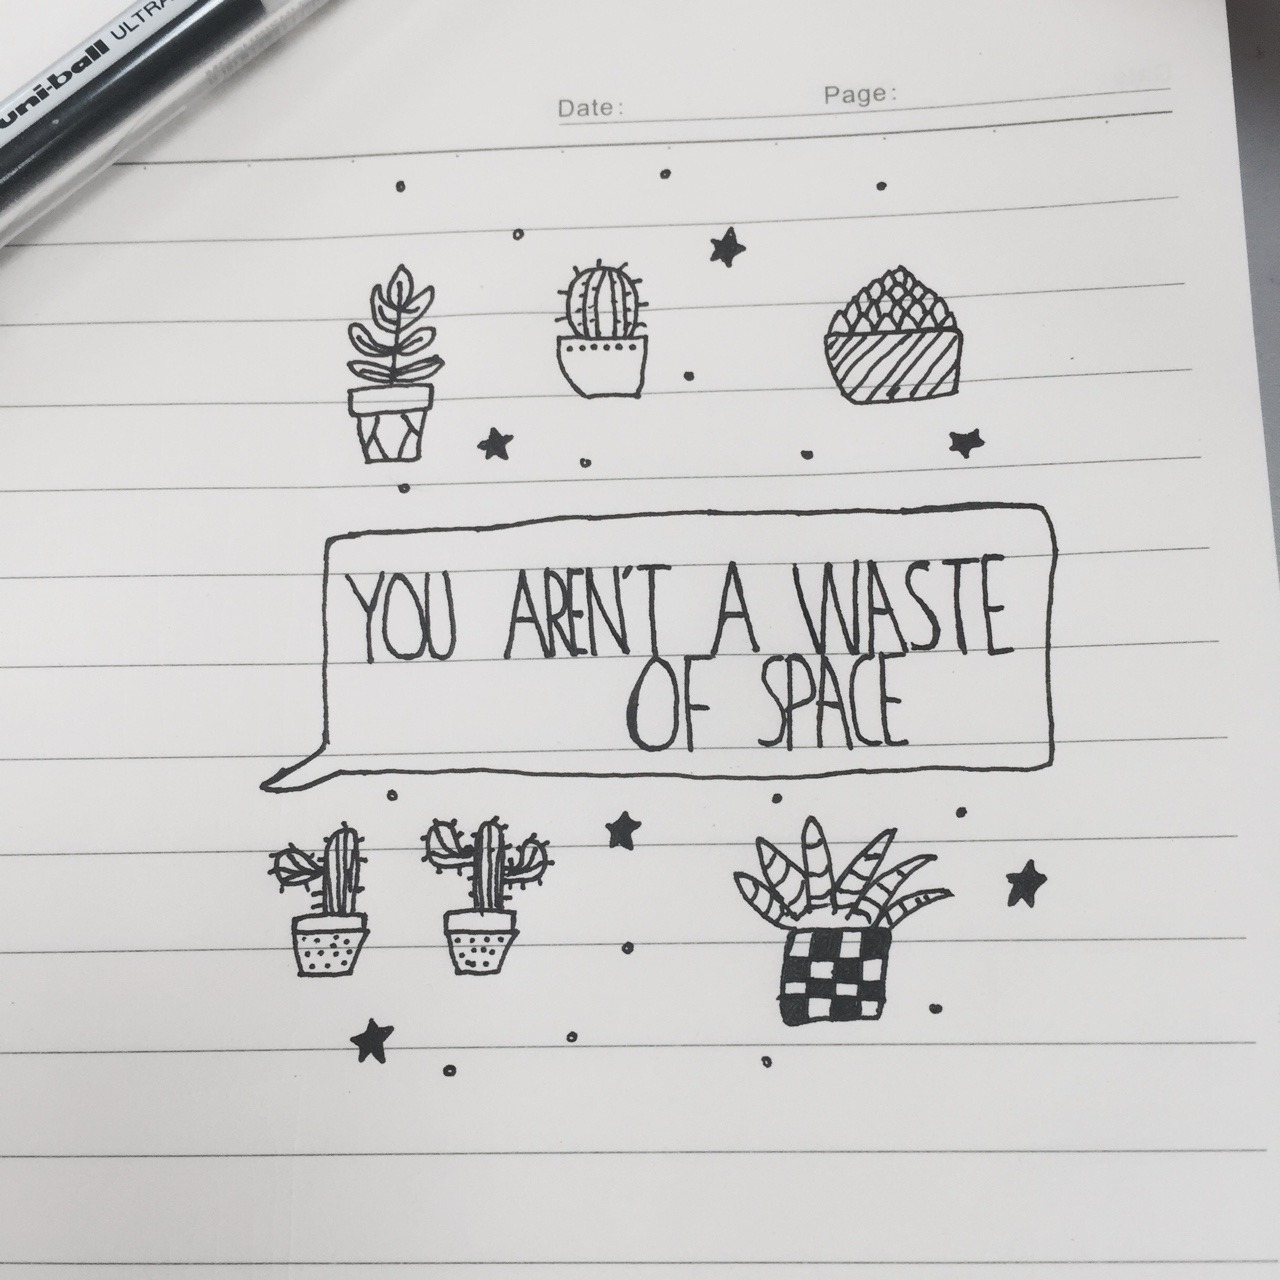 uni-ball ULTRA
Date: Page:
YOU AREN'T A WASTE
OF SPACE